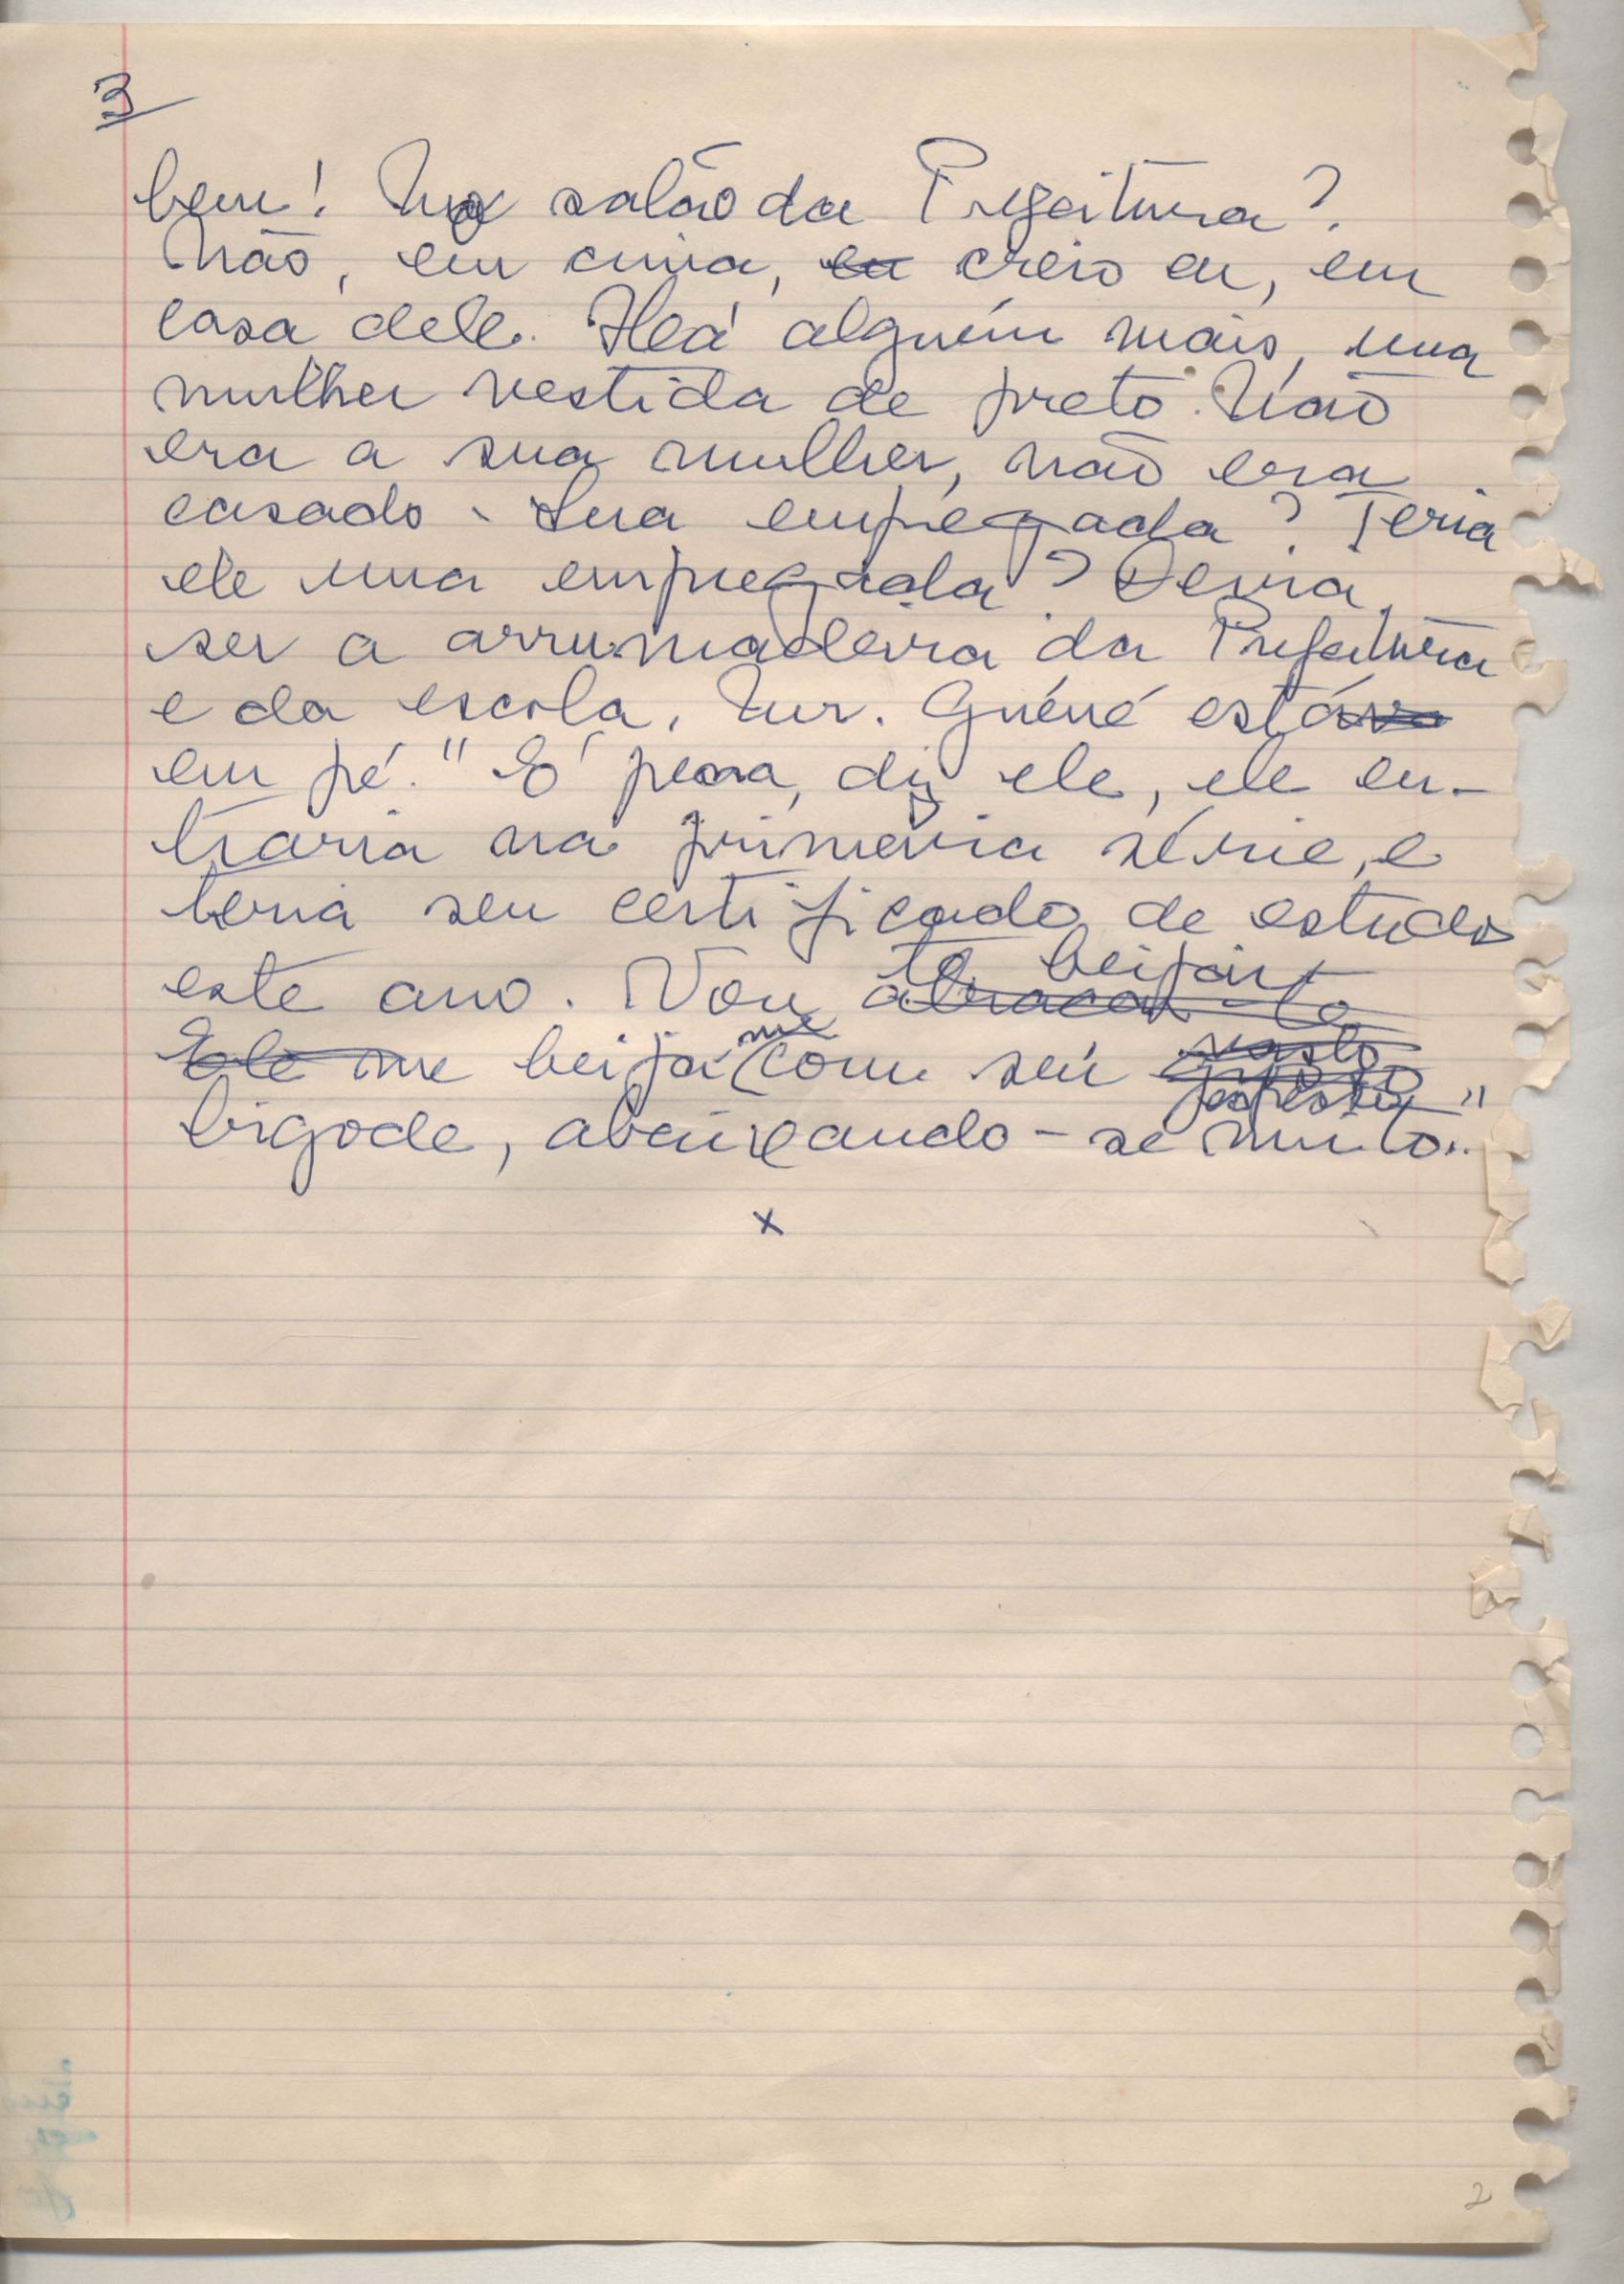 3
bem! No salão da Prefeitura?
Não, em cima, eu creio eu, em
casa dele. Há alguém mais, uma
mulher vestida de preto. Não
era a sua mulher, não era
casado. Sua empregada? Teria
ele uma empregada? Devia
ser a arrumadeira da Prefeitura
e da escola. Mr. Guéné estava
em pé. "É pena, diz ele, ele en-
traria na primeira série, e
teria seu certificado de estudos
este ano. Vou abraçá-lo
te beijar
Ele me beija me com seu
vasto
espesso
bigode, abaixando-se muito..."
x
2